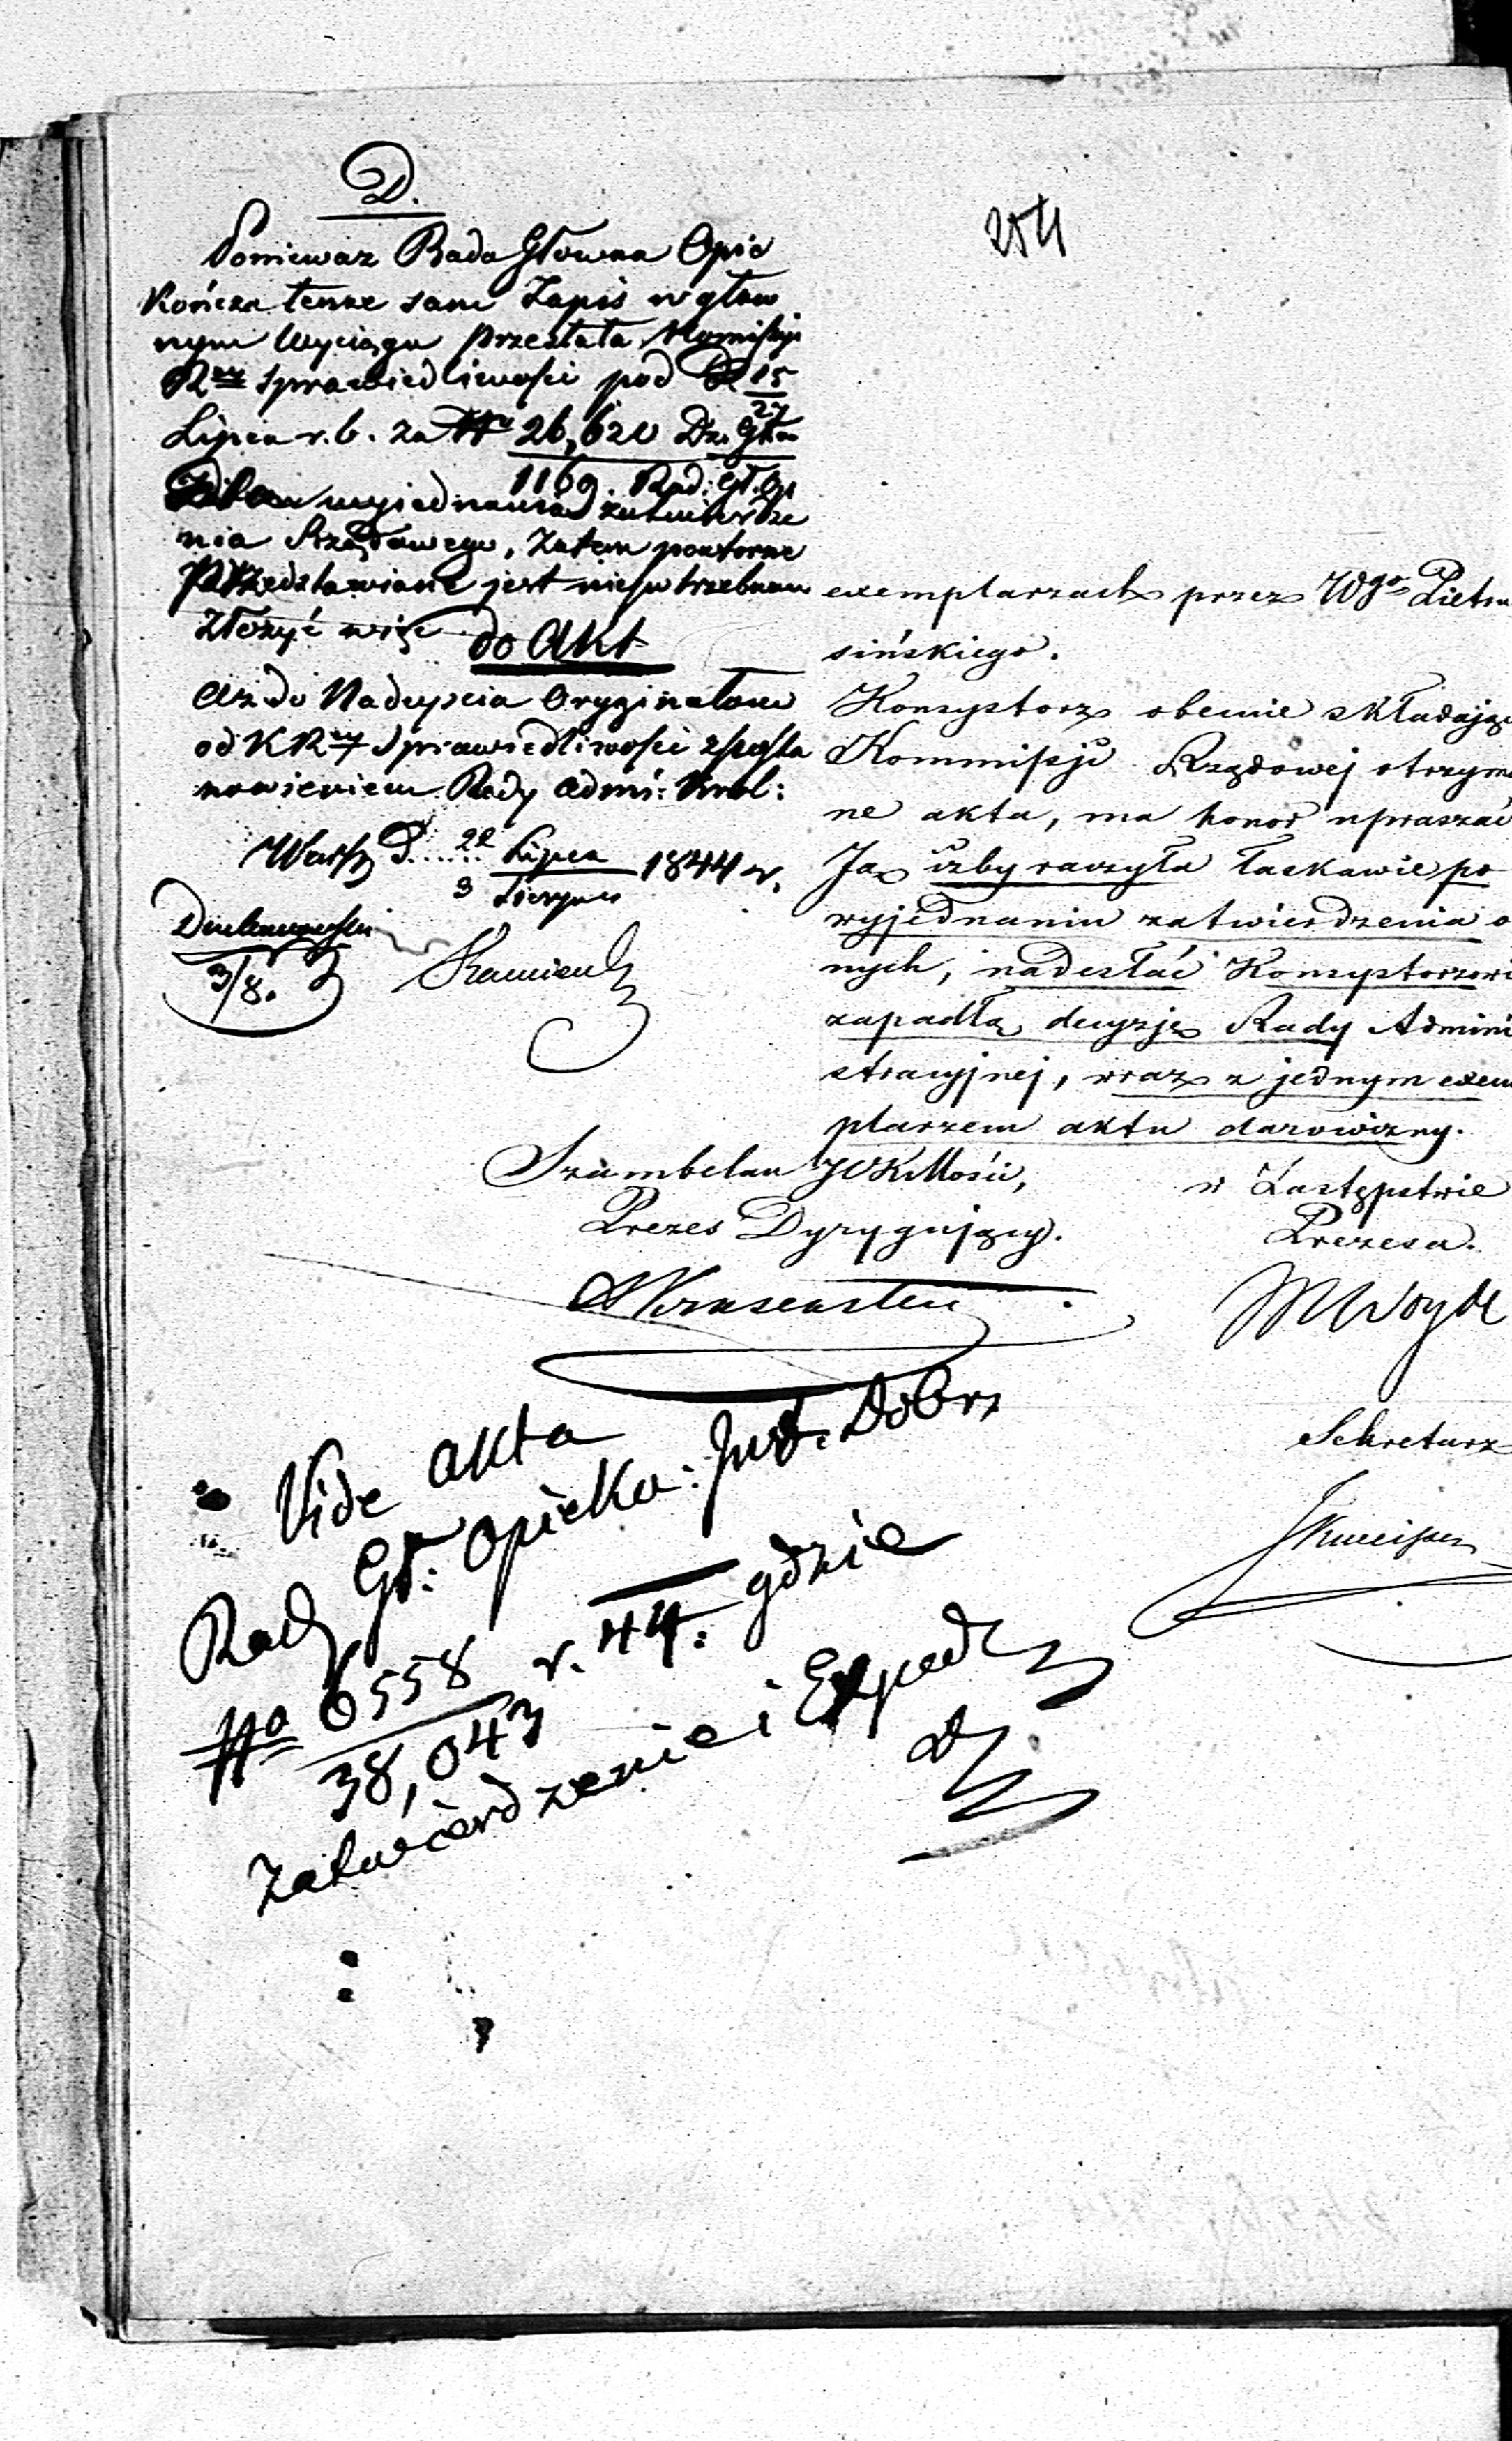 D.
254
Poniewaz Rada Głowna Opie
kończa tenze sam Zapis w głow
nym Wyciągu przesłała Kommissyi
R<sup>ey</sup> Sprawiedliwości pod D. 15/27
Lipca r. b. za N<sup>o</sup> 26,620 Dz. Głow
1169. Rad: Gł. Op
wyjednania zatwierdze
nia Rządowego, Zatem powtorne
Przedstawianie jest niepotrzebnem
Złożyć więc do Akt
aż do Nadejscia Oryginałow
od KR<sup>ey</sup> Sprawiedliwości z posta
nowieniem Rady Admi: Krol:
Warsz D...... 22 Lipca / 3 Sierpnia 1844 r.
3/8.
exemplarzach przez W<sup>go</sup> Pietru
sińskiego.
Konsystorz obecnie składając
Kommissji Rządowej otrzyma
ne akta, ma honor upraszać
Ją iżby raczyła łaskawie po
wyjednaniu zatwierdzenia o
nych, nadesłać Konsystorzowi
zapadłą decyzję Rady Admini
stracyjnej, wraz z jednym exem
plarzem aktu darowizny.
Szambelan JCKMości,
Prezes Dyrygujący.
w Zastępstwie
Prezesa.
Sekretarz
Vide akta
Rady Gł: Opieku: Inst. Dobr
N<sup>o</sup> 6558/38,043 r. 44: gdzie
Zatwierdzenie i Exped